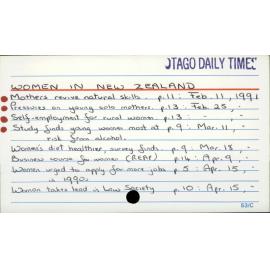 OTAGO DAILY TIMES
WOMEN IN NEW ZEALAND
Mothers revive natural skills. p.11: Feb. 11, 1991
Pressures on young solo mothers. p.13: Feb. 25, -
Self-employment for rural women p.13: - , -
Study finds young women most at p.9: Mar. 11, -
risk from alcohol.
Women's diet healthier, survey finds. p.9: Mar. 13, -
Business course for women (REAP) p.14: Apr. 9, -
Women urged to apply for more jobs p.5: Apr. 15, -
in 1990.
Woman takes lead in Law Society p.10: Apr. 15, -
53/C